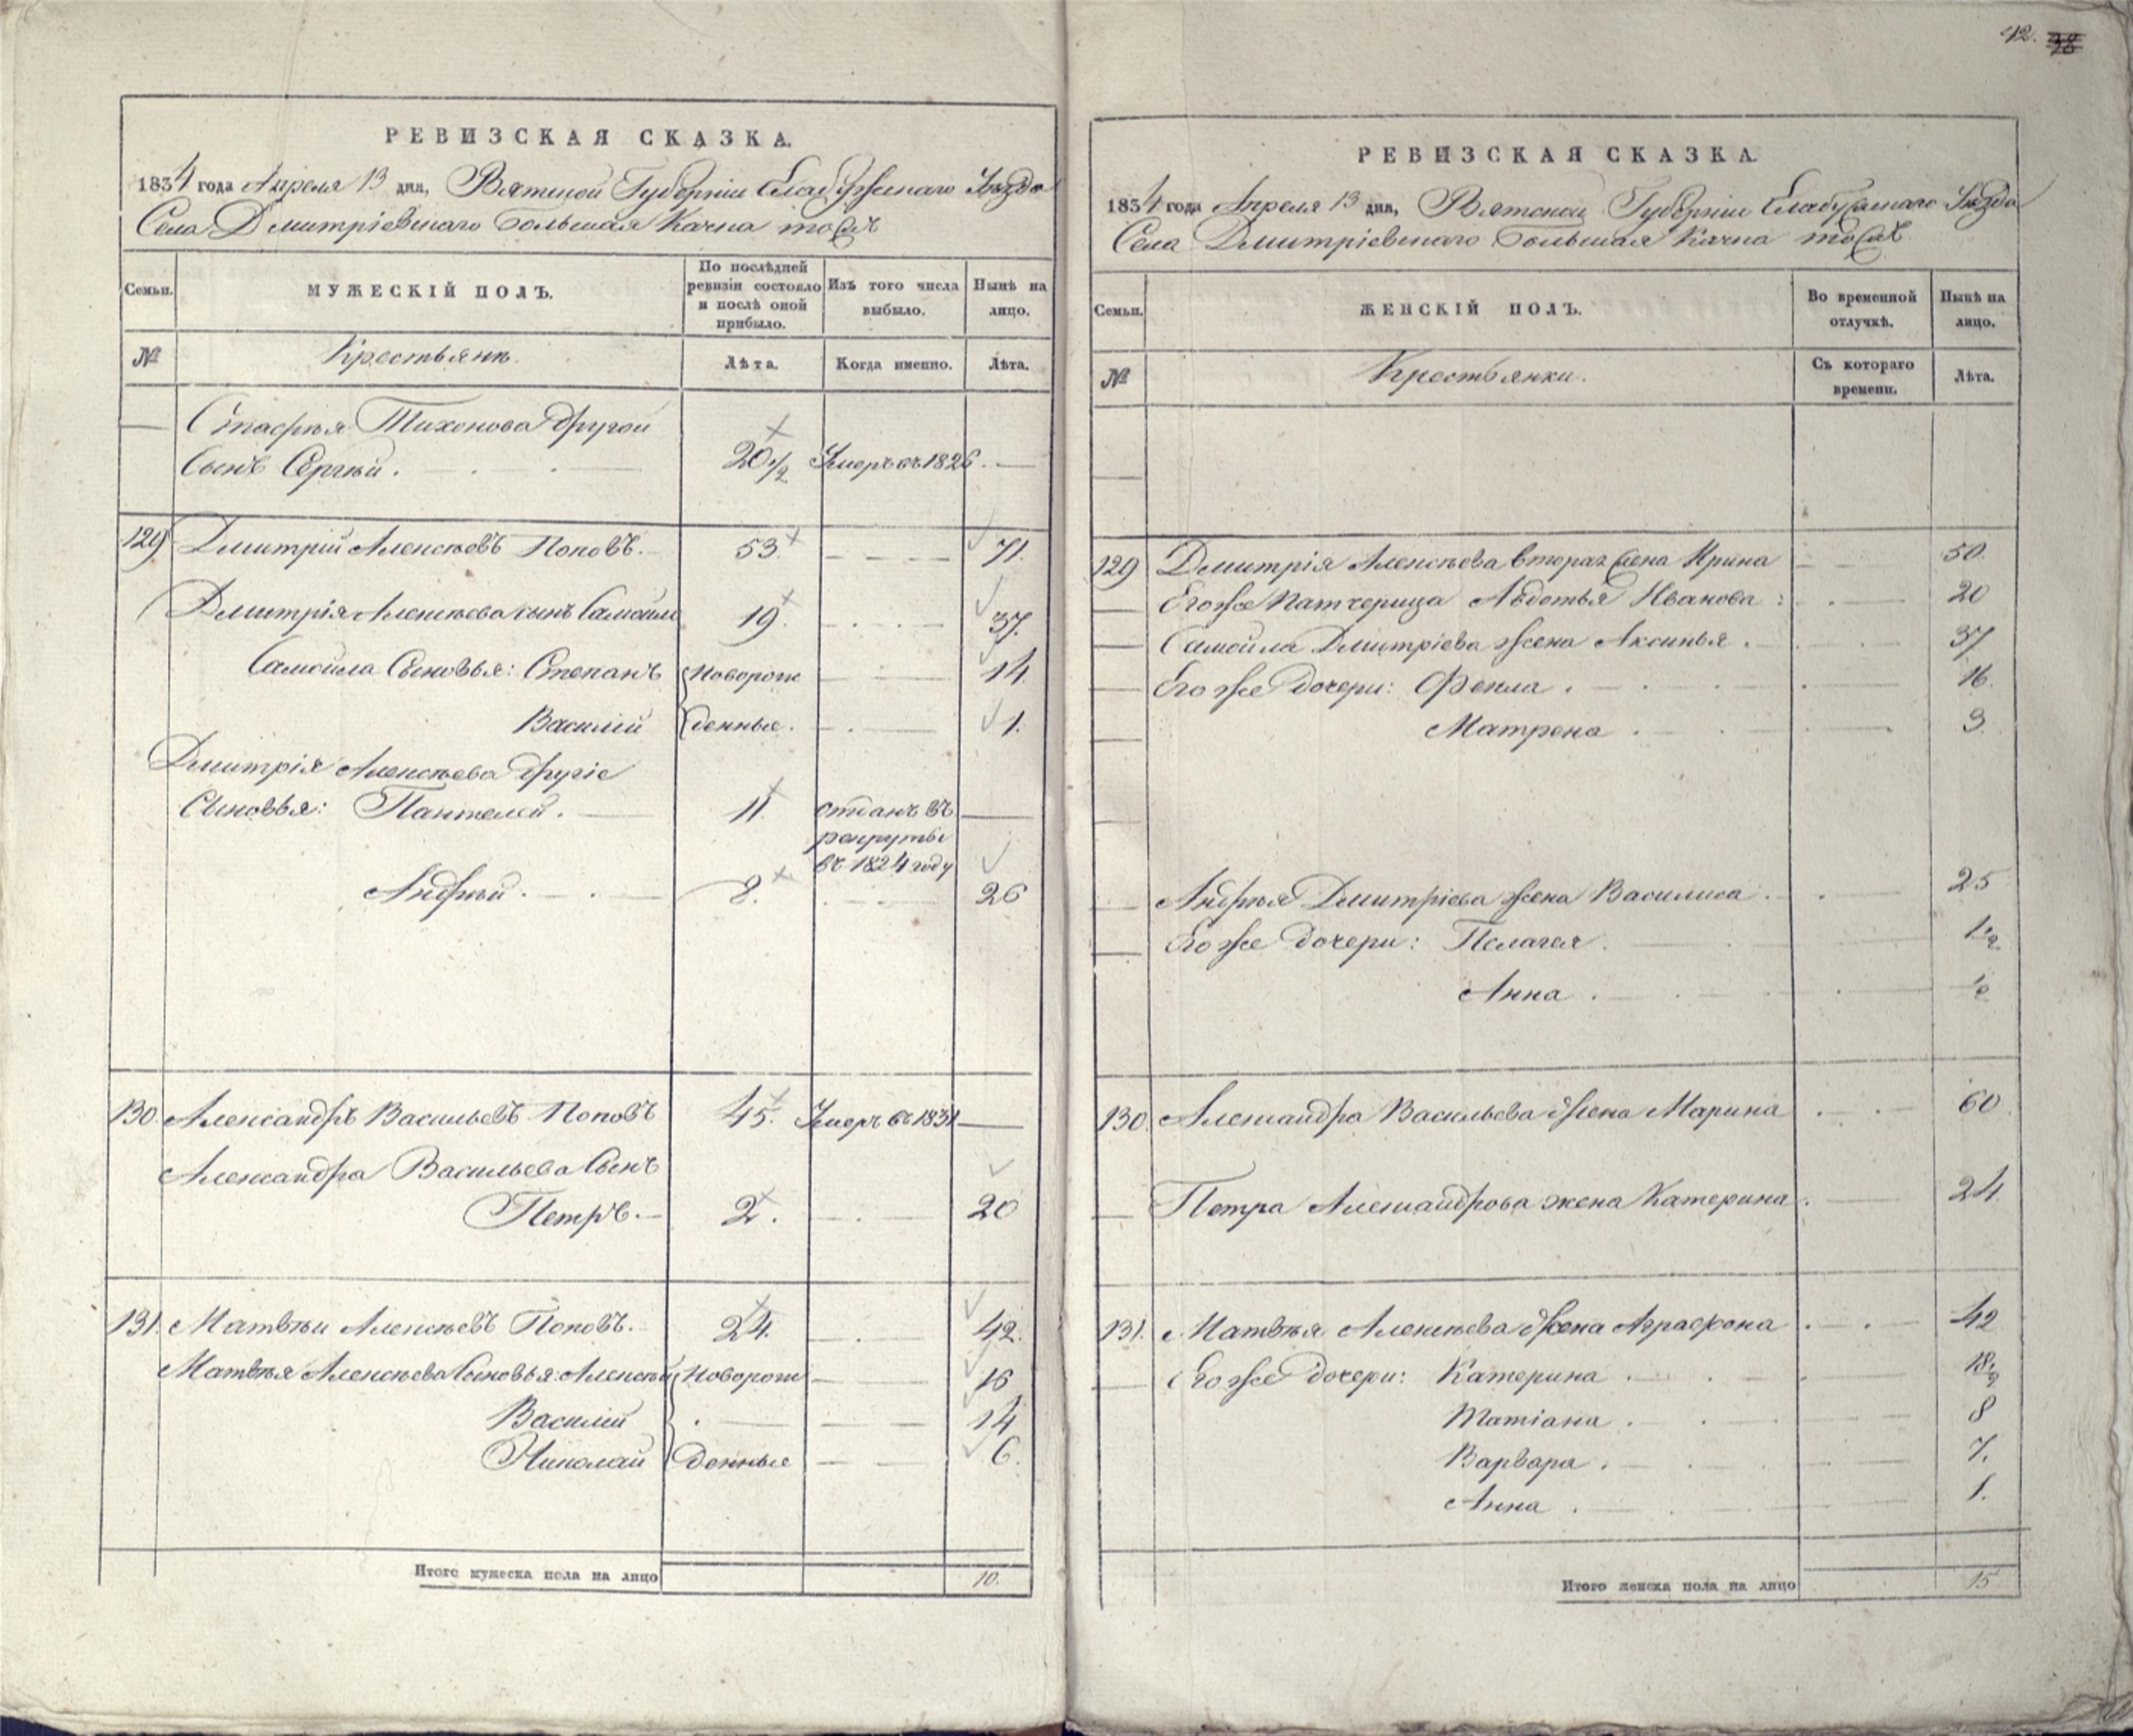 РЕВИЗСКАЯ СКАЗКА.
1834 года Апреля 13 дня, Вятской Губерніи Елабужскаго Уѣзда
Села Дмитріевскаго Большая Качка тожъ
Семьи. МУЖЕСКІЙ ПОЛЪ. По послѣдней ревизіи состояло и послѣ оной прибыло. Изъ того числа выбыло. Нынѣ на лицо.
№ Крестьянъ. Лѣта. Когда именно. Лѣта.
Стафѣя Тихонова другой
Сынъ Сергѣй. 20 1/2 Умеръ въ 1826.
129 Дмитрій Алексѣевъ Поповъ. 53. 71.
Дмитрія Алексѣева сынъ Самойла 19. 37.
Самойла Сыновья: Степанъ Новорож 14
Василій денные. 1.
Дмитрія Алексѣева другіе
Сыновья: Пантелей. 11. отданъ въ
рекруты
въ 1824 году
Андрѣй. 8. 26
130. Александръ Васильевъ Поповъ 45. Умеръ въ 1831
Александра Васильева Сынъ
Петръ. 2. 20
131. Матвѣй Алексѣевъ Поповъ. 24. 42.
Матвѣя Алексѣева Сыновья: Алексѣй Новорож 16
Василій 14
Николай денные 6.
Итого мужеска пола на лицо 10.
42. 38
РЕВИЗСКАЯ СКАЗКА.
1834 года Апреля 13 дня, Вятской Губерніи Елабужскаго Уѣзда
Села Дмитріевскаго Большая Качка тожъ
Семьи. ЖЕНСКІЙ ПОЛЪ. Во временной отлучкѣ. Нынѣ на лицо.
№ Крестьянки. Съ котораго времени. Лѣта.
129 Дмитрія Алексѣева вторая жена Ирина 50.
Его же Патчерица Авдотья Иванова: 20
Самойла Дмитріева жена Аксинья. 37
Его же дочери: Фекла. 16.
Матрена 3.
Андрѣя Дмитріева жена Василиса. 25
Его же дочери: Пелагея. 1 1/2
Анна. 1/2
130. Александра Васильева жена Марина 60.
Петра Александрова жена Катерина. 24.
131. Матвѣя Алексѣева жена Аграфена 42
Его же дочери: Катерина. 18 1/2
Татіана. 8
Варвара. 7.
Анна. 1.
Итого женска пола на лицо 15